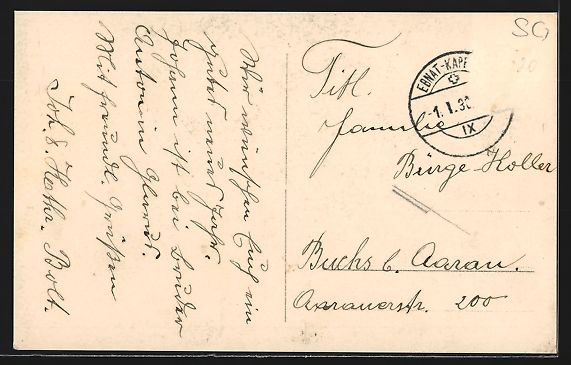 Wir wünschen Euch ein
gutes neues Jahr.
Johann ist bei Bruder
Anton in
Mit freundl. Grüßen
Joh. & Katha. Bolt.
SG
EBNAT-KAPP
-1.I.3
IX
Titl.
Familie
Bürge-Holler
Buchs b. Aarau.
Aarauerstr. 200